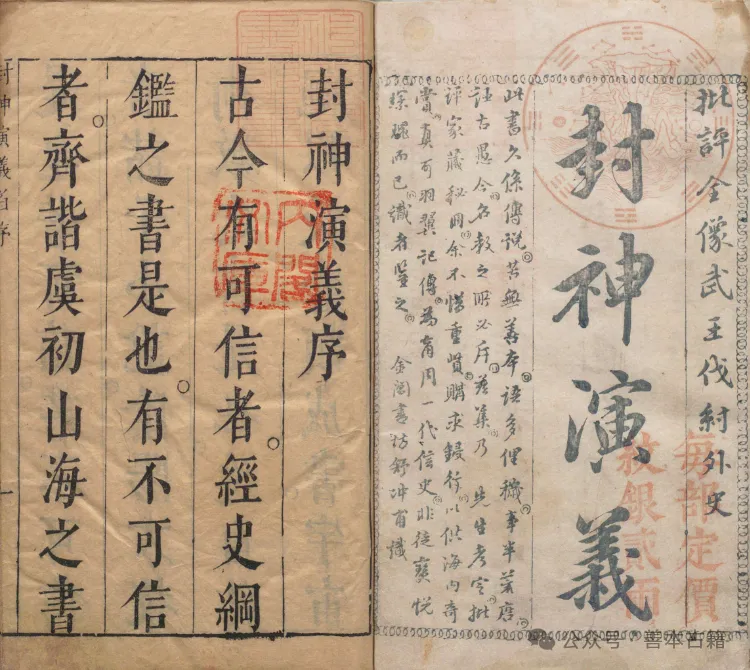 批評全像武王伐紂外史
封神演義
此書久係傳說苦無善本語多俚穢事半荒唐
古愚今名教之所必斥茲集乃 先生考定批
評家藏秘冊余不惜重貲購求鋟行以供海內奇
賞真可羽翼記傳為商周一代信史非徒寶悅
琛瑰而已識者鑒之 金閶書坊舒沖甫識
每部定價
紋銀貳兩
封神演義序
古今有可信者經史綱
鑑之書是也有不可信
者齊諧虞初山海之書
內閣
文庫
封神演義 序
一
公众号 · 善本古籍